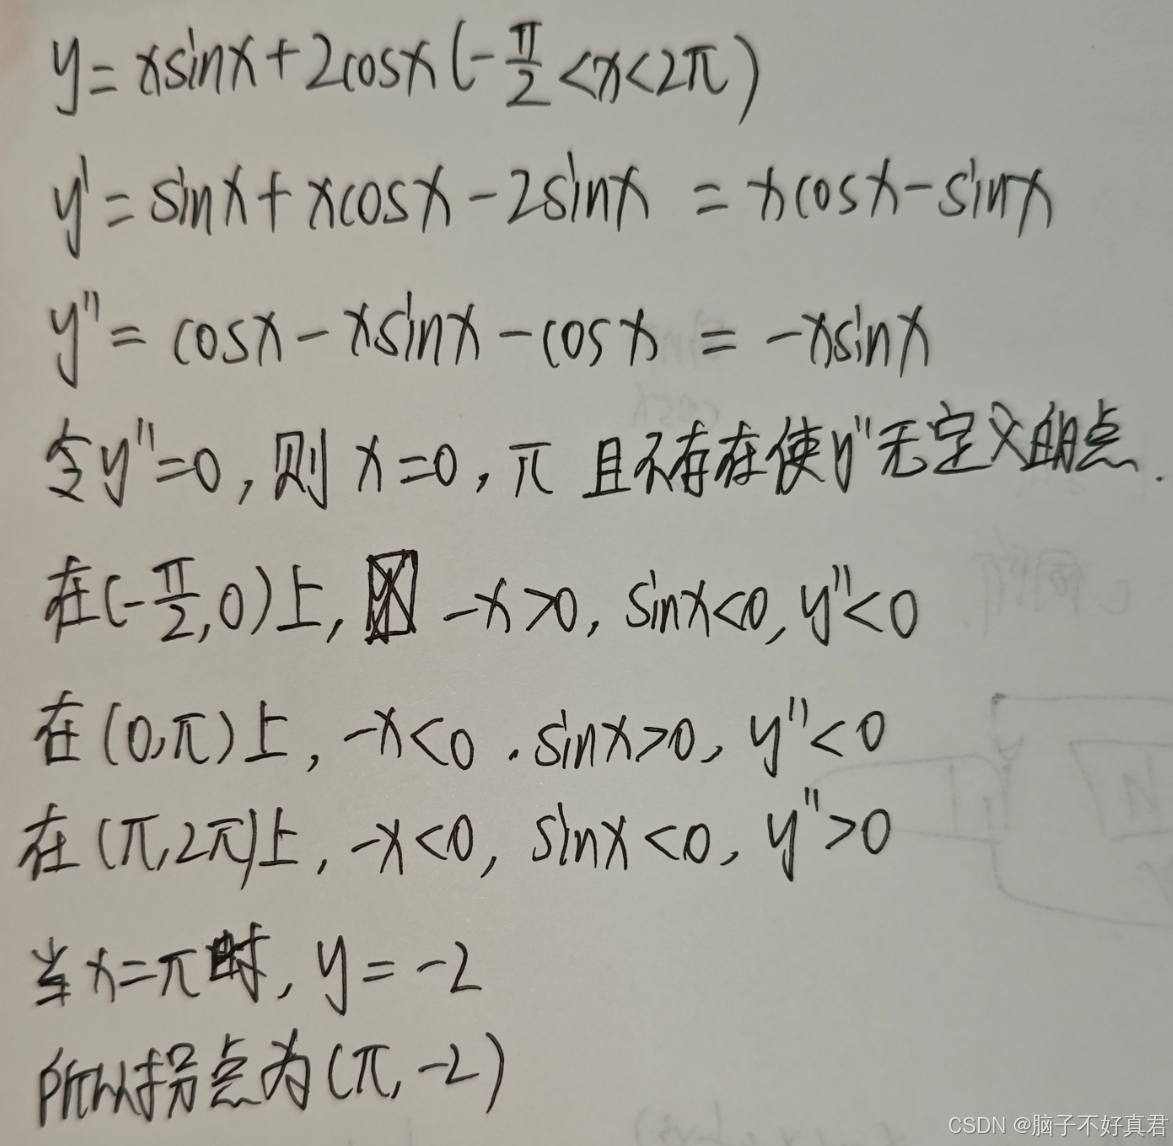 y = xsinx + 2cosx (-π/2 < x < 2π)
y' = sinx + xcosx - 2sinx = xcosx - sinx
y'' = cosx - xsinx - cosx = -xsinx
令y''=0, 则 x=0, π 且不存在使y''无定义的点.
在(-π/2, 0)上, -x>0, sinx<0, y''<0
在(0,π)上, -x<0. sinx>0, y''<0
在(π,2π)上, -x<0, sinx<0, y''>0
当x=π时, y=-2
所以拐点为(π,-2)
CSDN @脑子不好真君